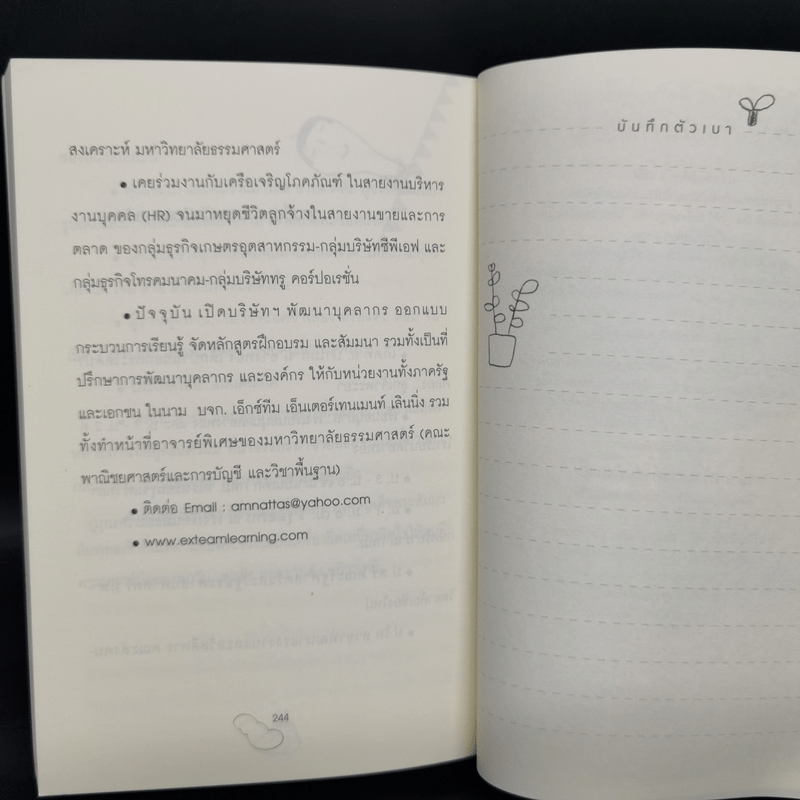 สงเคราะห์ มหาวิทยาลัยธรรมศาสตร์
• เคยร่วมงานกับเครือเจริญโภคภัณฑ์ ในสายงานบริหาร
งานบุคคล (HR) จนมาหยุดชีวิตลูกจ้างในสายงานขายและการ
ตลาด ของกลุ่มธุรกิจเกษตรอุตสาหกรรม-กลุ่มบริษัทซีพีเอฟ และ
กลุ่มธุรกิจโทรคมนาคม-กลุ่มบริษัททรู คอร์ปอเรชั่น
• ปัจจุบัน เปิดบริษัทฯ พัฒนาบุคลากร ออกแบบ
กระบวนการเรียนรู้ จัดหลักสูตรฝึกอบรม และสัมมนา รวมทั้งเป็นที่
ปรึกษาการพัฒนาบุคลากร และองค์กร ให้กับหน่วยงานทั้งภาครัฐ
และเอกชน ในนาม บจก. เอ็กซ์ทีม เอ็นเตอร์เทนเมนท์ เลินนิ่ง รวม
ทั้งทำหน้าที่อาจารย์พิเศษของมหาวิทยาลัยธรรมศาสตร์ (คณะ
พาณิชยศาสตร์และการบัญชี และวิชาพื้นฐาน)
• ติดต่อ Email : amnattas@yahoo.com
• www.exteamlearning.com
244
บันทึกตัวเบา